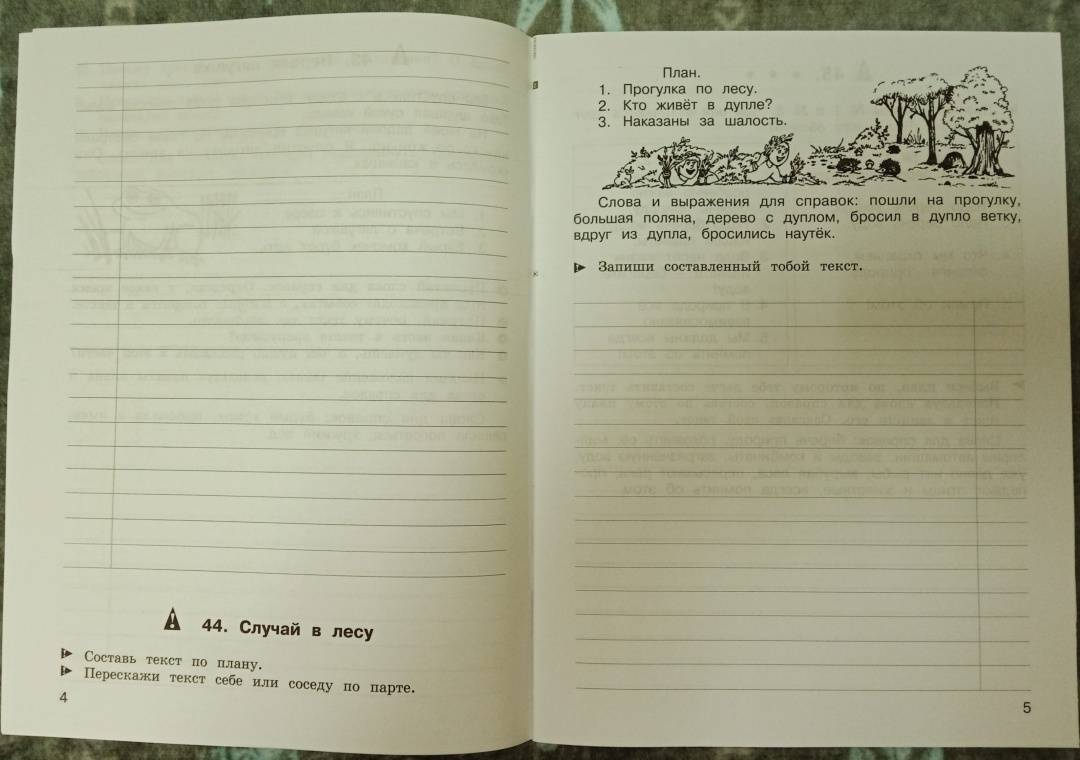 44. Случай в лесу
Составь текст по плану.
Перескажи текст себе или соседу по парте.
4
План.
1. Прогулка по лесу.
2. Кто живёт в дупле?
3. Наказаны за шалость.
Слова и выражения для справок: пошли на прогулку,
большая поляна, дерево с дуплом, бросил в дупло ветку,
вдруг из дупла, бросились наутёк.
Запиши составленный тобой текст.
5